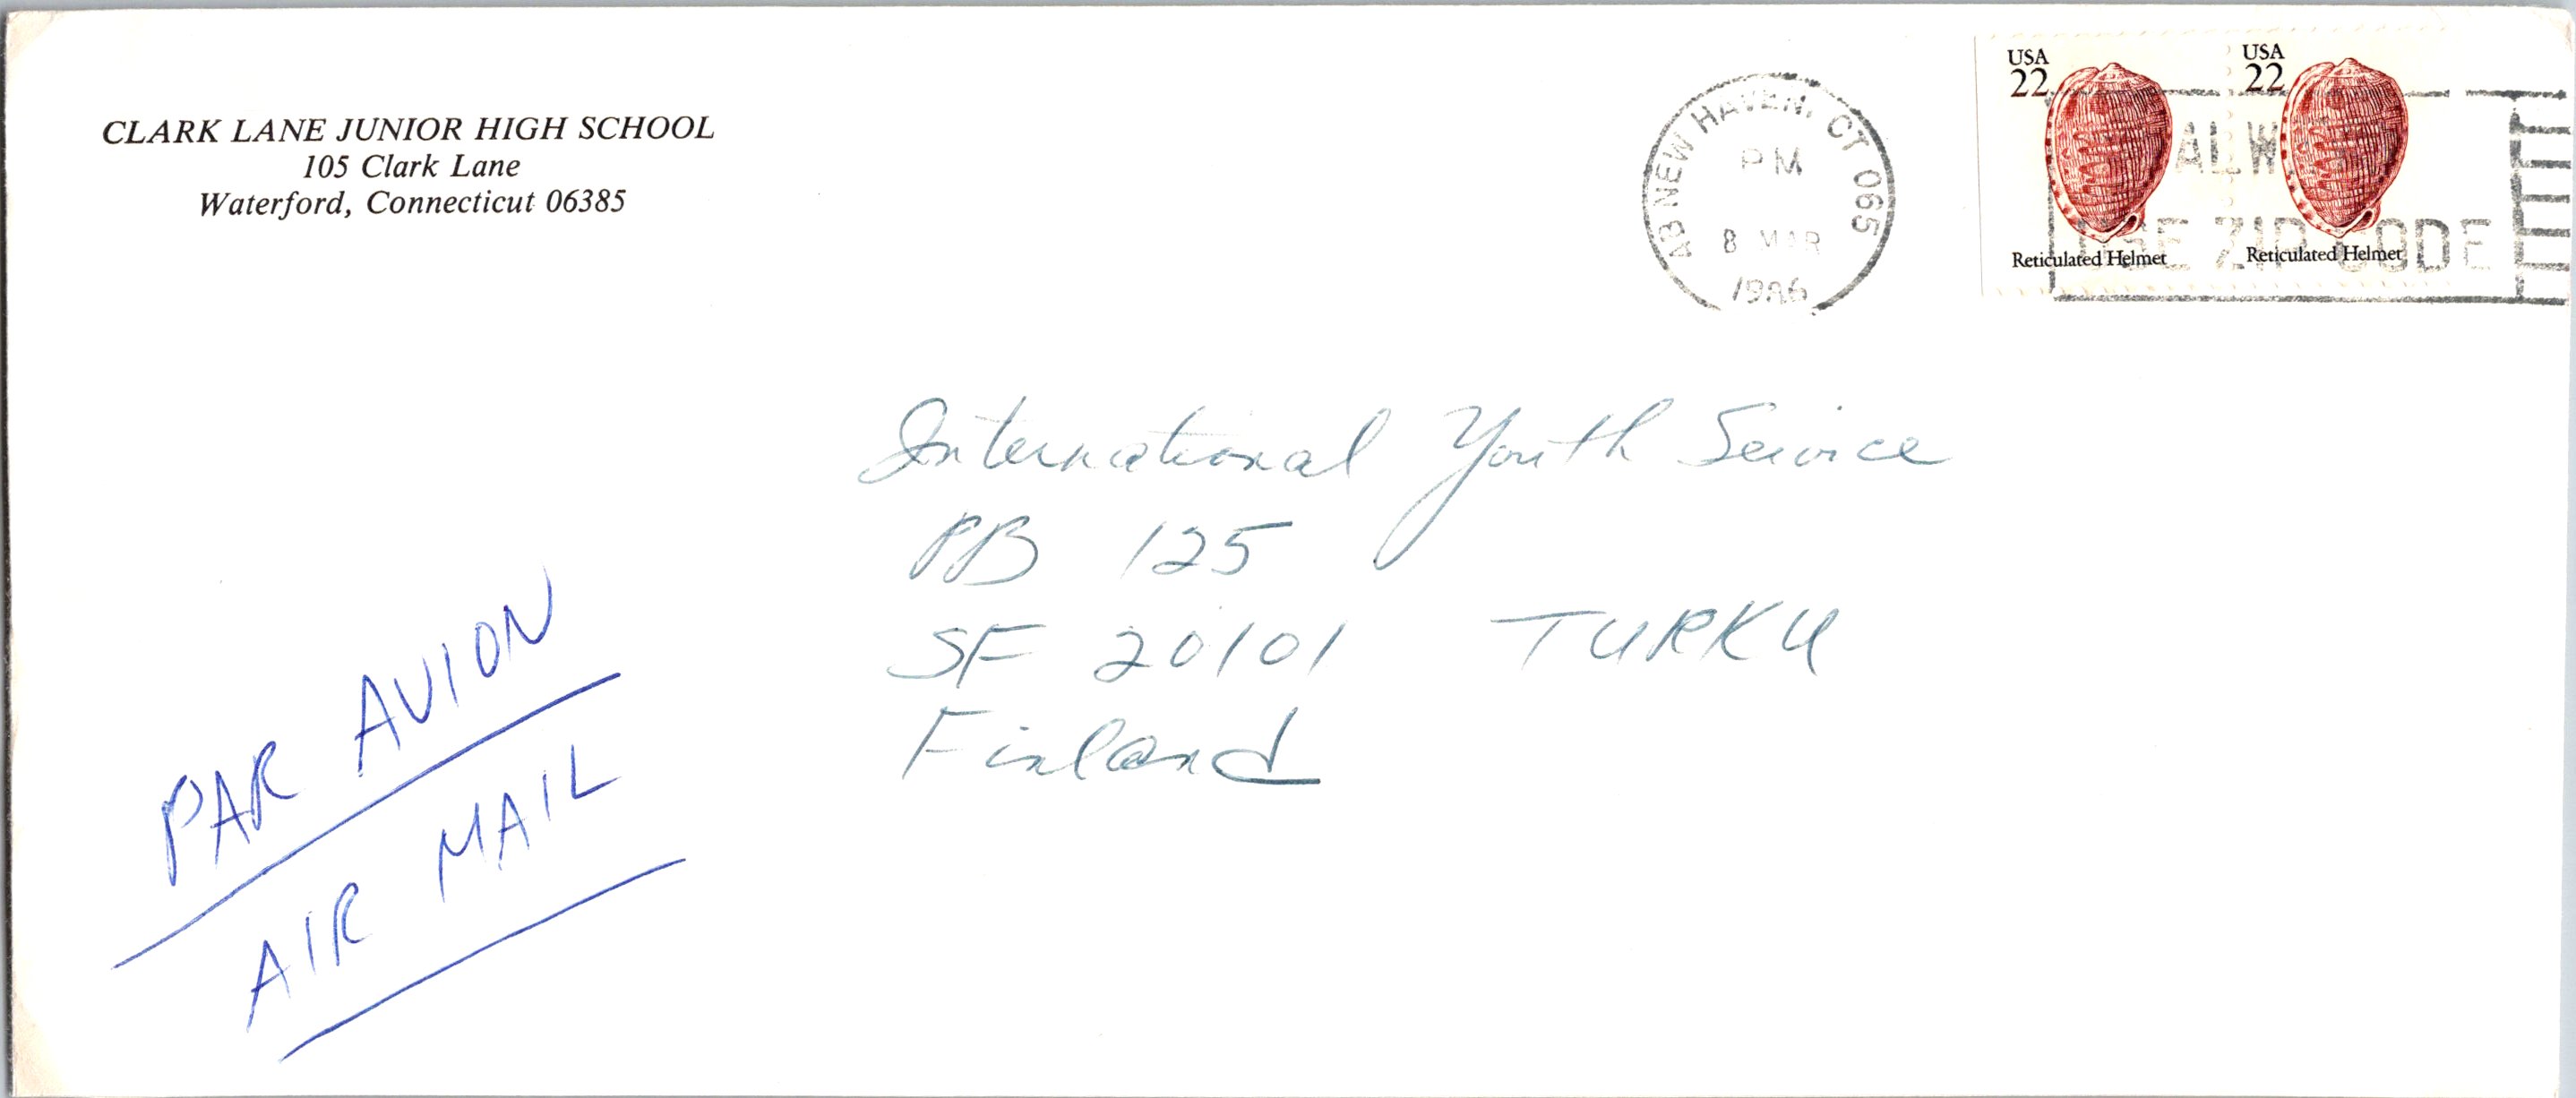 CLARK LANE JUNIOR HIGH SCHOOL
105 Clark Lane
Waterford, Connecticut 06385
AB NEW HAVEN, CT 065
PM
8 MAR
1986
USA
22
Reticulated Helmet
USA
22
Reticulated Helmet
ALW
USE ZIP CODE
International Youth Service
PB 125
SF 20101 TURKU
Finland
PAR AVION
AIR MAIL